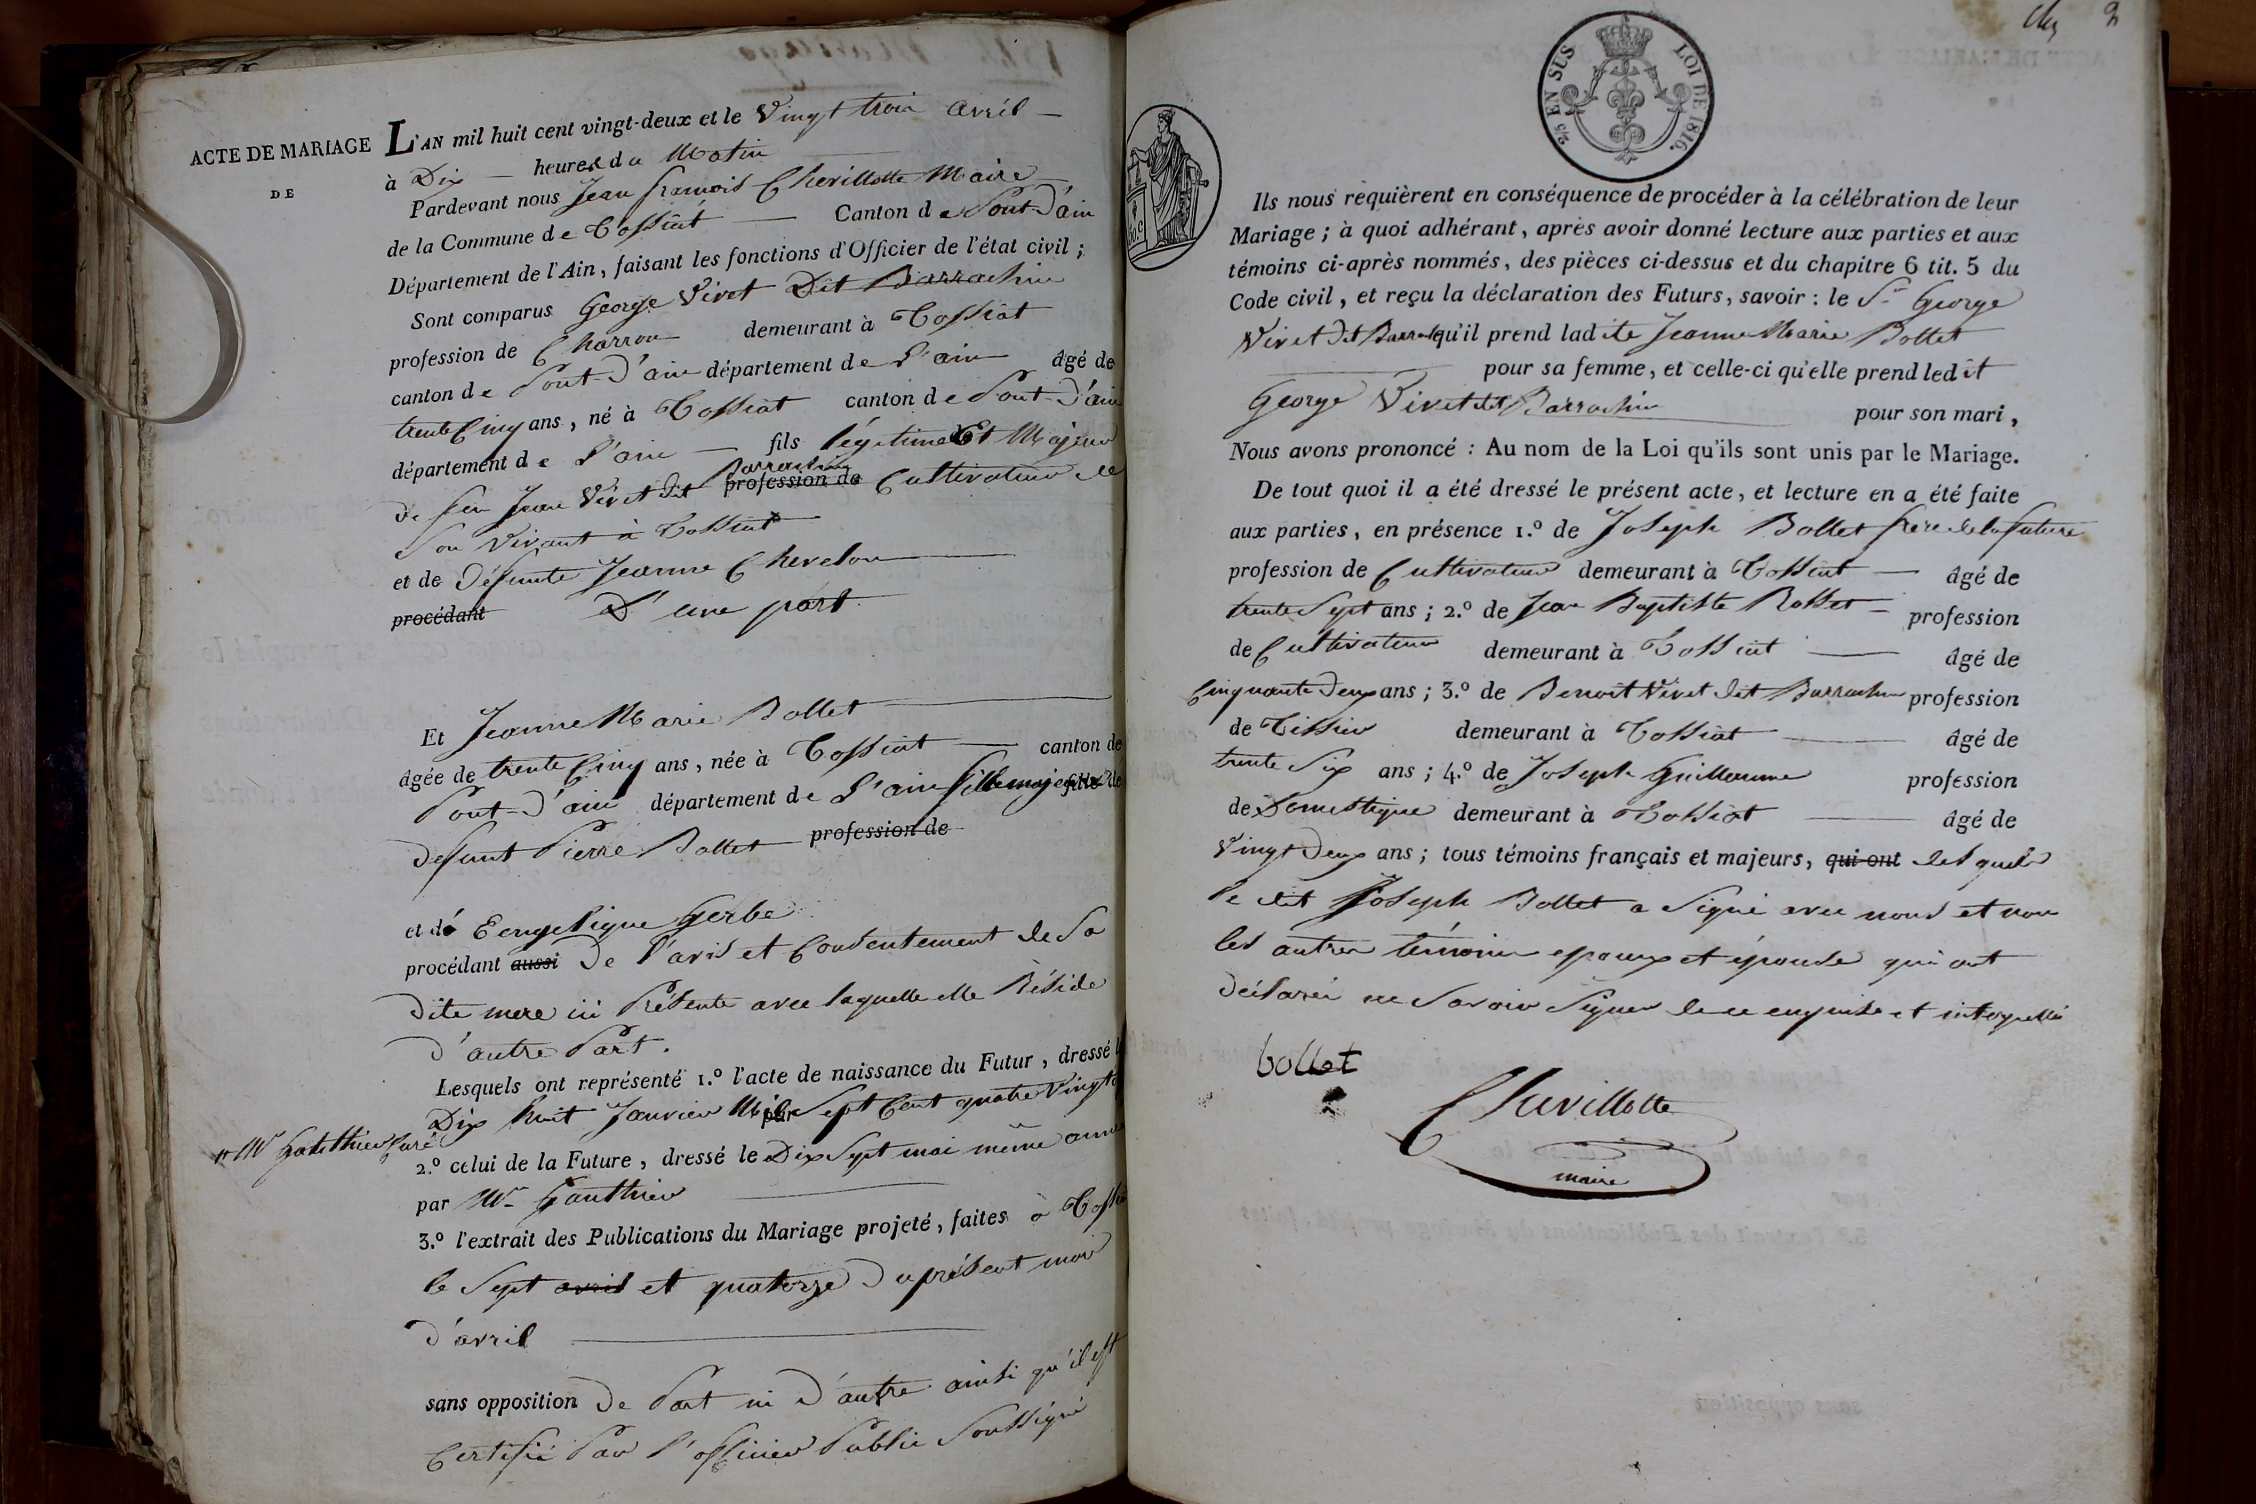 ACTE DE MARIAGE
DE
L'AN mil huit cent vingt-deux et le Vingt trois avril
à Dix heures du Matin
Pardevant nous Jean francois Chevillotte Maire
de la Commune de Tossiat Canton de Pont-d'ain
Département de l'Ain, faisant les fonctions d'Officier de l'état civil ;
Sont comparus George Vivet Dit Barrachin
profession de Charron demeurant à Tossiat
canton de Pont-d'ain département de L'ain âgé de
trente Cinq ans, né à Tossiat canton de Pont-d'ain
département de L'ain fils légitime Et Majeur
Barrachin
de feu Jean Vivet dit profession de Cultivateur de
Son Vivant à Tossiat
et de défunte Jeanne Chevelon
procédant D'une part
Et Jeanne Marie Bollet
âgée de trente Cinq ans, née à Tossiat canton de
Pont-d'ain département de L'ain fille majeure fille de
defunt Pierre Bollet profession de
et de Engelique Gerbe
procédant aussi De l'avis et Consentement de Sa
dite mere ici Présente avec laquelle elle Réside
d'autre Part.
Lesquels ont représenté 1.º l'acte de naissance du Futur, dressé l
Dix huit Janvier Mil Sept Cent quatre Vingt
par
Mr Gauthier Curé
2.º celui de la Future, dressé le Dix Sept mai même anné
par Mr Gauthier
3.º l'extrait des Publications du Mariage projeté, faites à Toss
le Sept avril et quatorze du présent mois
d'avril
sans opposition de Part ni d'autre ainsi qu'il est
Certifié Par l'officier Public Soussigné
2
2/5 EN SUS
LOI DE 1816.
Ils nous requièrent en conséquence de procéder à la célébration de leur
Mariage ; à quoi adhérant, après avoir donné lecture aux parties et aux
témoins ci-après nommés, des pièces ci-dessus et du chapitre 6 tit. 5 du
Code civil, et reçu la déclaration des Futurs, savoir : le Sr George
Vivet dit Barrach qu'il prend ladite Jeanne Marie Bollet
pour sa femme, et celle-ci qu'elle prend ledit
George Vivet dit Barrachin pour son mari,
Nous avons prononcé : Au nom de la Loi qu'ils sont unis par le Mariage.
De tout quoi il a été dressé le présent acte, et lecture en a été faite
aux parties, en présence 1.º de Joseph Bollet frère de la future
profession de Cultivateur demeurant à Tossiat âgé de
trente Sept ans ; 2.º de Jean Baptiste Rosset profession
de Cultivateur demeurant à Tossiat âgé de
Cinquante deux ans ; 3.º de Benoit Vivet dit Barrachin profession
de Tissier demeurant à Tossiat âgé de
trente Six ans ; 4.º de Joseph Guillaume profession
de Domestique demeurant à Tossiat âgé de
Vingt deux ans ; tous témoins français et majeurs, qui ont des quels
le dit Joseph Bollet a Signé avec nous et non
les autres témoins epoux et épouse qui ont
déclaré ne Savoir Signer de ce enquis et interpellé
bollet
Chevillotte
maire